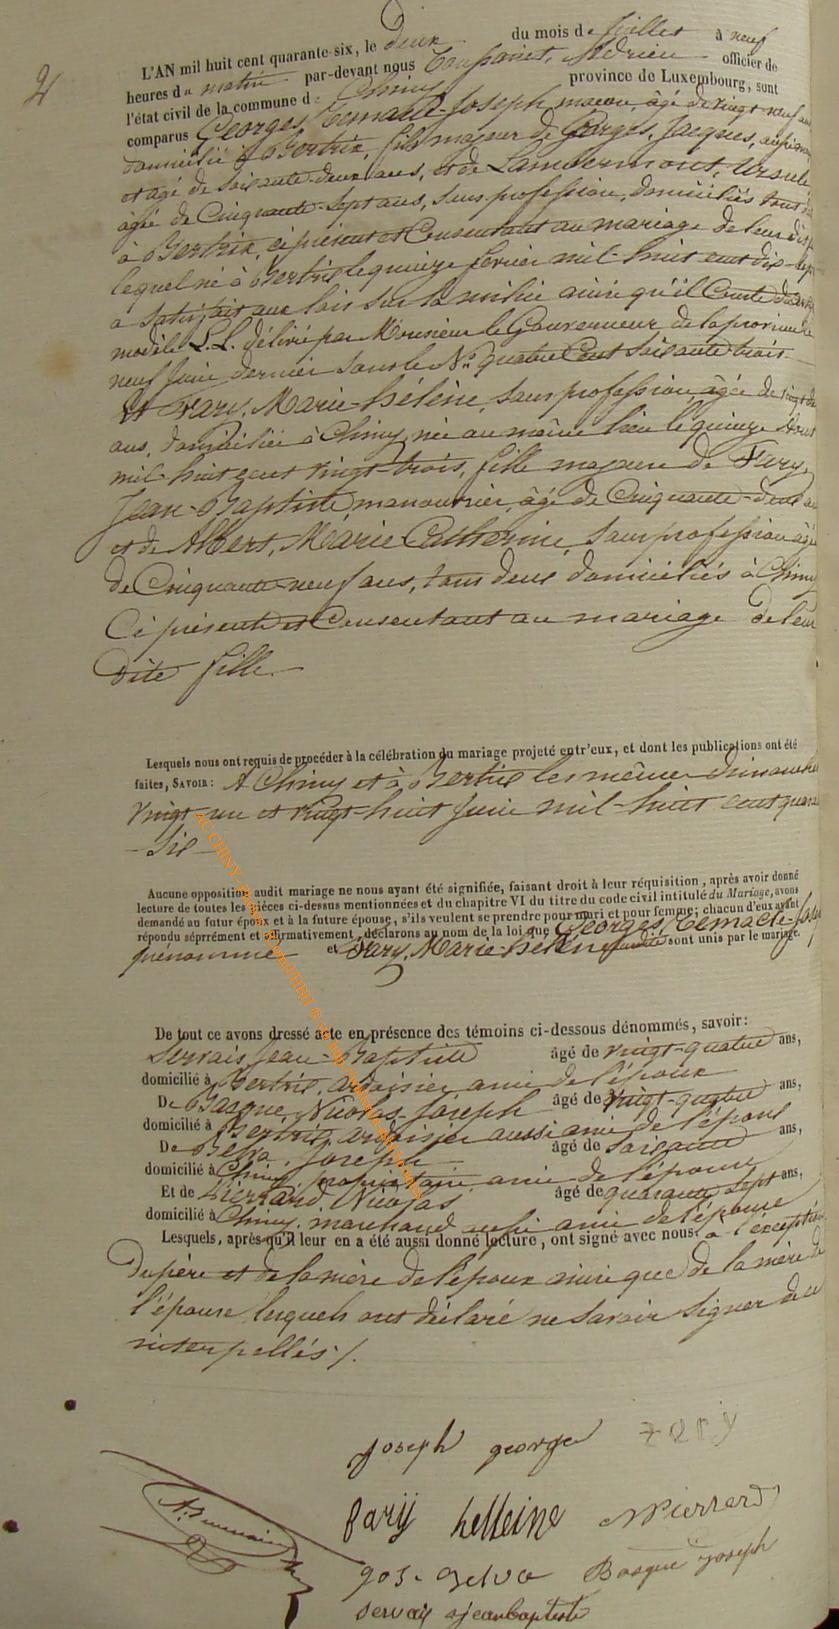 2
L'AN mil huit cent quarante-six, le deux du mois de juillet à neuf
heures du matin par-devant nous Toussaint, Adrien officier de
l'état civil de la commune de Chiny province de Luxembourg, sont
comparus Georges, Remacle-Joseph, maçon, âgé de vingt neuf ans
domicilié à Bertrix, fils majeur de Georges, Jacques, aussi maçon
et âgé de soixante-deux ans, et de Lambermont, Ursule,
âgée de Cinquante-sept ans, sans profession, domiciliés tous deux
à Bertrix, ci présent et Consentant au mariage de leur dit fils
lequel né à Bertrix le quinze février mil-huit cent dix-sept
a satisfait aux lois sur la milice ainsi qu'il Conste du
modèle L.L. délivré par Monsieur le Gouverneur de la province le
neuf Juin dernier sous le N° quatre Cent soixante trois.
Et Fary, Marie-Hélène, sans profession, âgée de vingt deux
ans, domiciliée à Chiny, née au même lieu le quinze Août
mil-huit cent vingt-trois, fille majeure de Fary,
Jean-Baptiste, manouvrier, âgé de Cinquante-deux ans
et de Albert, Marie Catherine, sans profession âgée
de Cinquante-neuf ans, tous deux domiciliés à Chiny
Ci présent et Consentant au mariage de leur
dite fille.
Lesquels nous ont requis de procéder à la célébration du mariage projeté entr'eux, et dont les publications ont été
faites, SAVOIR: A Chiny et à Bertrix les mêmes dimanches
vingt-un et vingt-huit Juin mil-huit cent quarante
-six
Aucune opposition audit mariage ne nous ayant été signifiée, faisant droit à leur réquisition, après avoir donné
lecture de toutes les pièces ci-dessus mentionnées et du chapitre VI du titre du code civil intitulé du Mariage, avons
demandé au futur époux et à la future épouse, s'ils veulent se prendre pour mari et pour femme; chacun d'eux ayant
répondu séprrément et affirmativement, déclarons au nom de la loi que Georges, Remacle-Joseph
prénommé et Fary, Marie-Hélène susdite sont unis par le mariage.
De tout ce avons dressé acte en présence des témoins ci-dessous dénommés, savoir:
Servais Jean-Baptiste âgé de vingt-quatre ans,
domicilié à Bertrix, ardoisier ami de l'époux
De Basque, Nicolas-Joseph âgé de vingt-quatre ans,
domicilié à Bertrix, ardoisier aussi ami de l'époux
De Gelva, Joseph âgé de soixante ans,
domicilié à Chiny, propriétaire, ami de l'épouse
Et de Pierrard, Nicolas âgé de quarante sept ans,
domicilié à Chiny, marchand aussi ami de l'épouse
Lesquels, après qu'il leur en a été aussi donné lecture, ont signé avec nous à l'exception
du père et de la mère de l'époux ainsi que de la mère de
l'épouse lesquels ont déclaré ne savoir signer de ce
interpellés /.
Joseph george Fary
farÿ helleine N Pierrard
Jos. Gelva Basque Joseph
servais jeanbaptiste